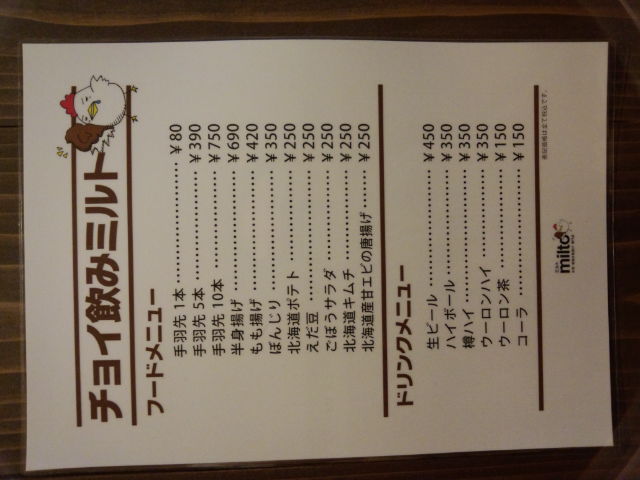 チョイ飲みミルト
フードメニュー
手羽先 1本 ¥80
手羽先 5本 ¥390
手羽先 10本 ¥750
半身揚げ ¥690
もも揚げ ¥420
ぼんじり ¥350
北海道ポテト ¥250
えだ豆 ¥250
ごぼうサラダ ¥250
北海道キムチ ¥250
北海道産甘エビの唐揚げ ¥250
ドリンクメニュー
生ビール ¥450
ハイボール ¥350
樽ハイ ¥350
ウーロンハイ ¥350
ウーロン茶 ¥150
コーラ ¥150
表記価格は全て税込です。
milto